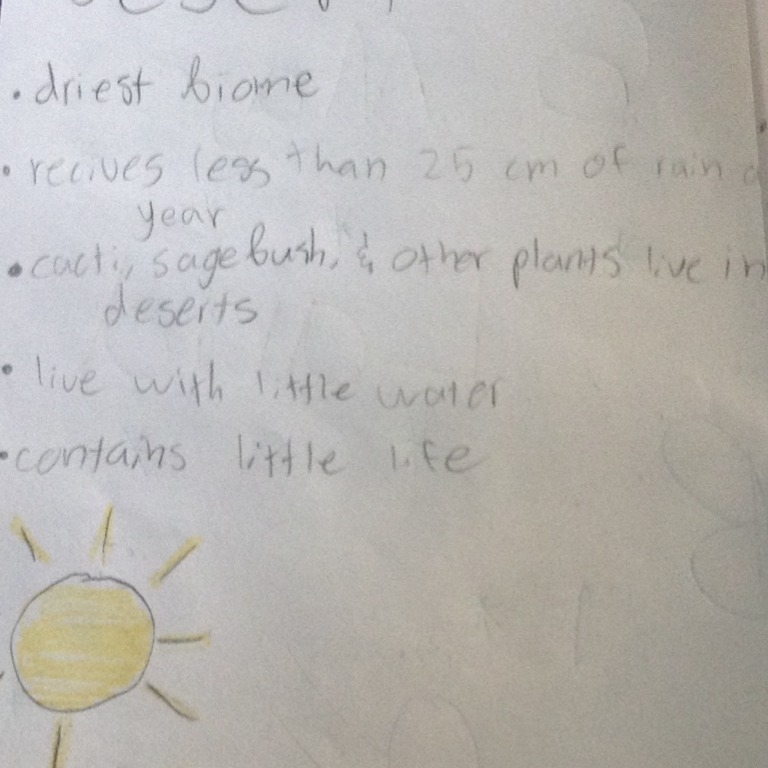 • driest biome
• recives less than 25 cm of rain a
year
• cacti, sagebush, & other plants live in
deserts
• live with little water
• contains little life